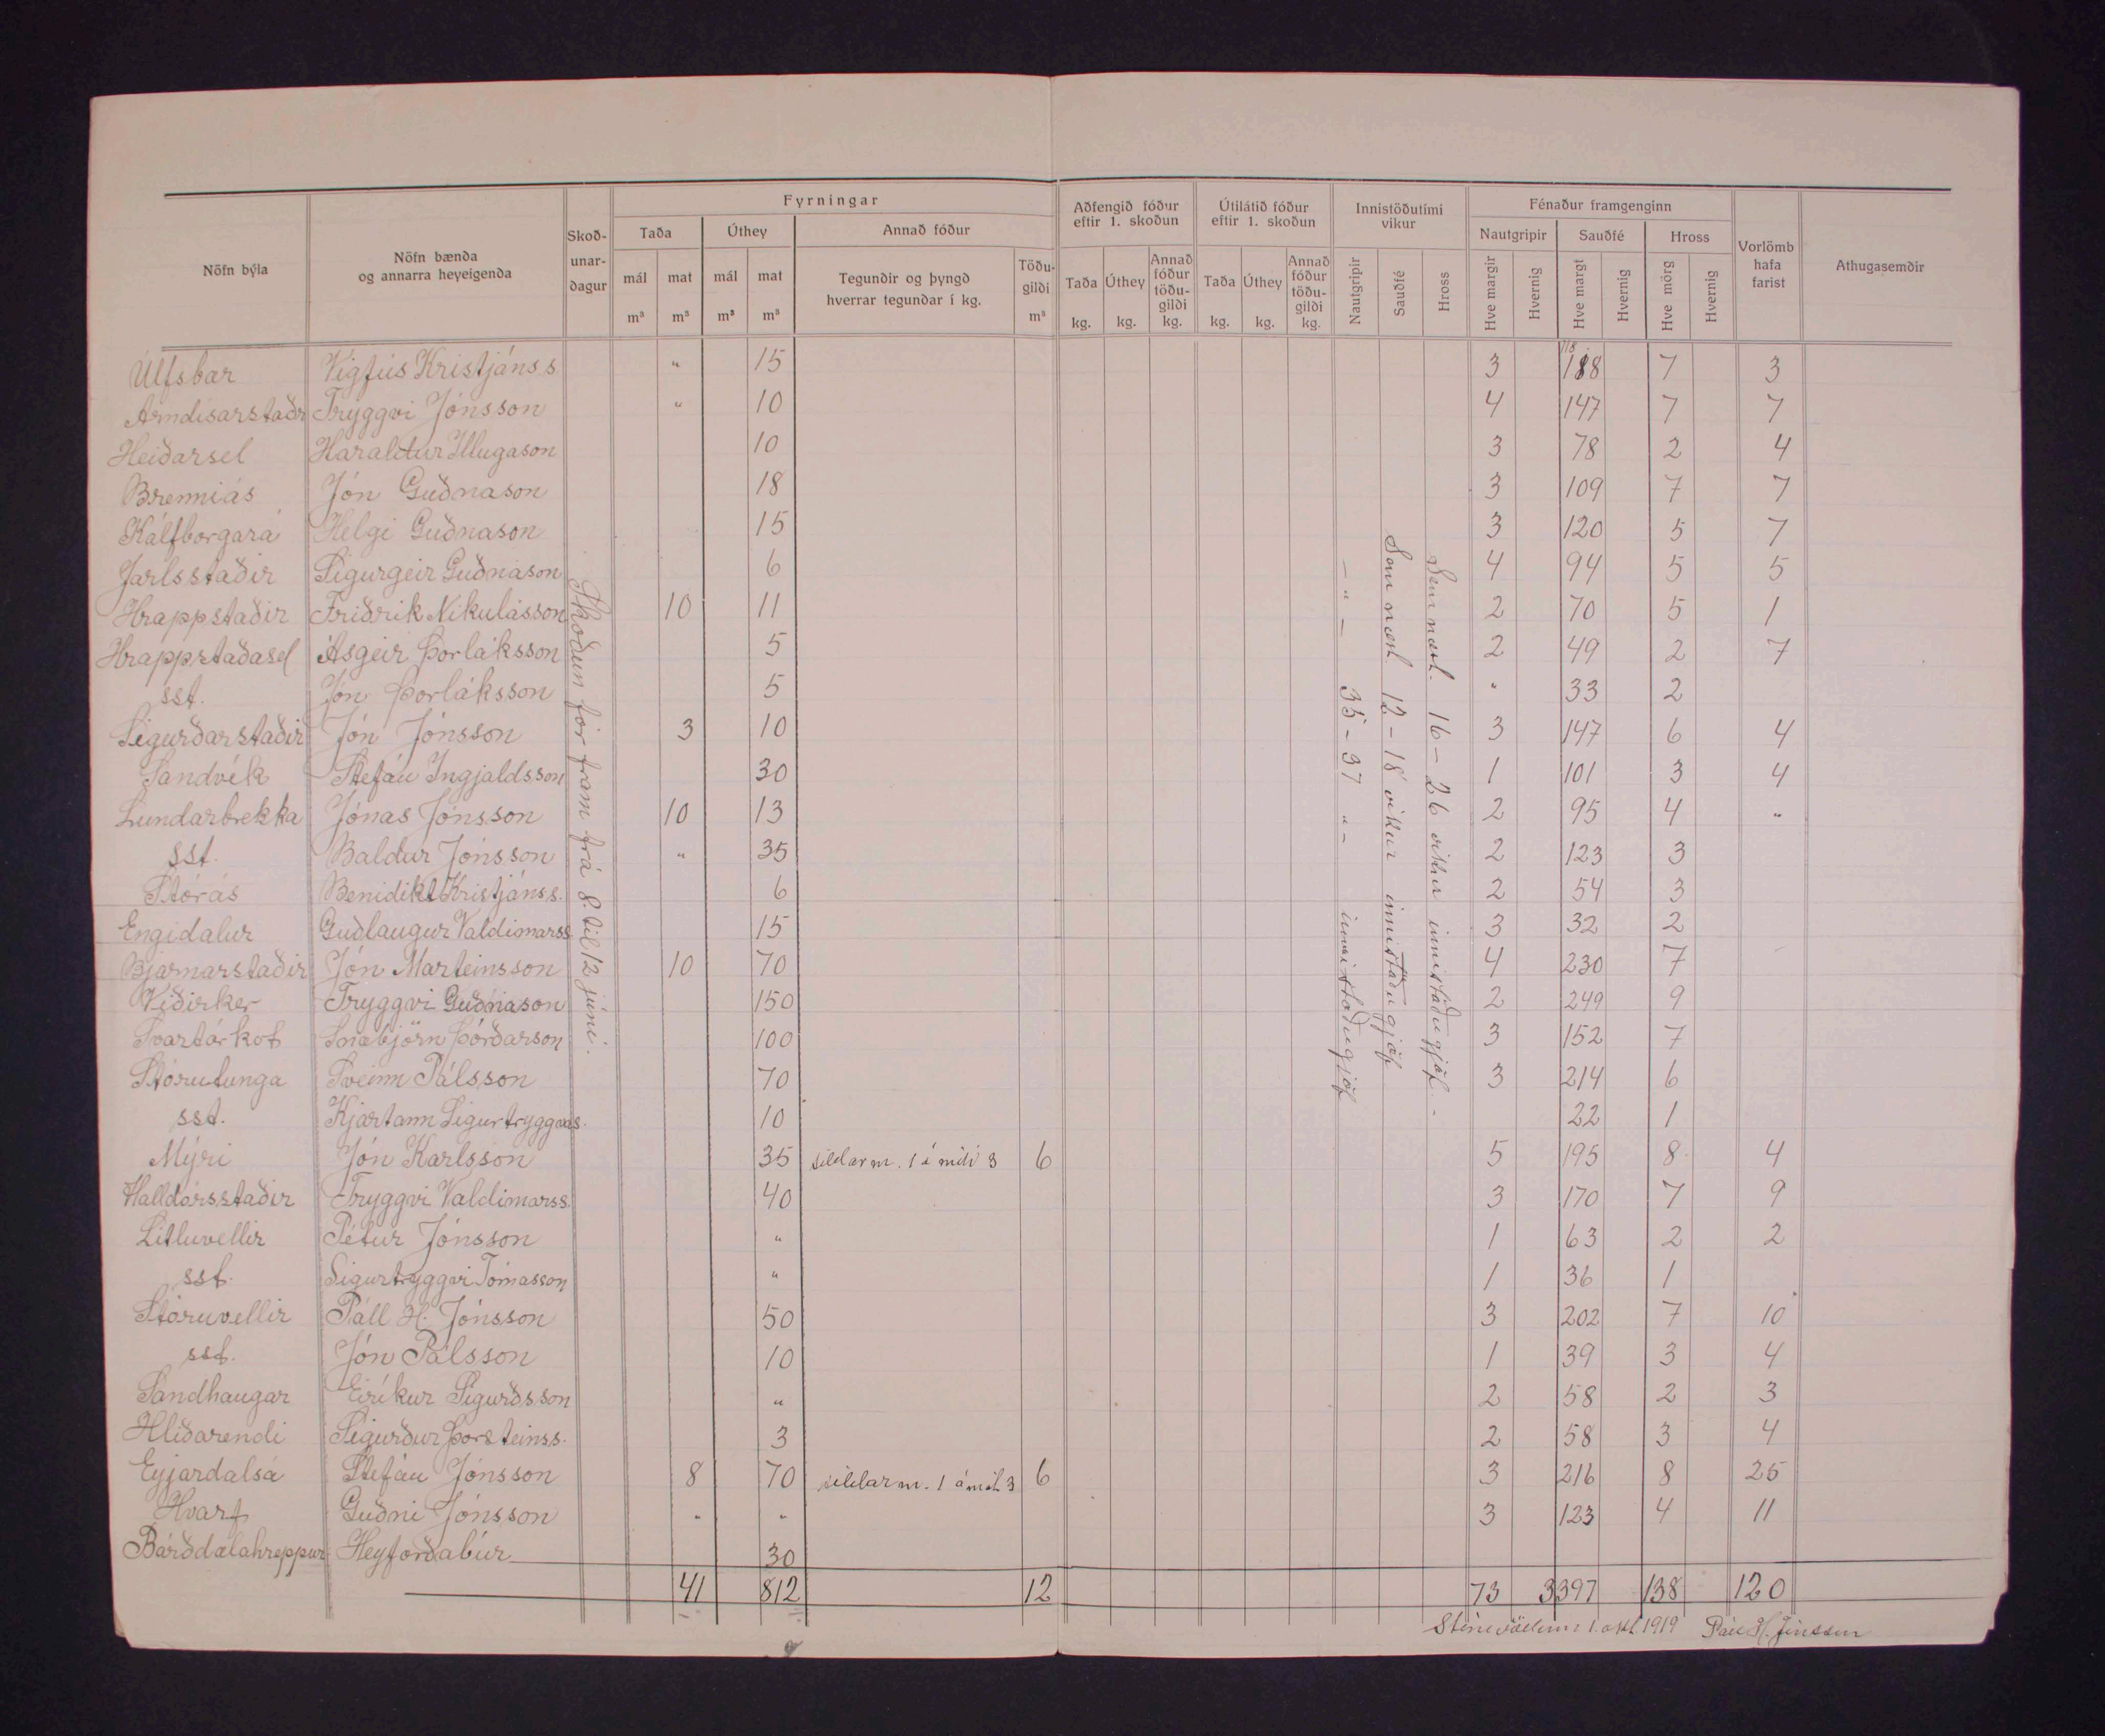 Fyrningar
Aðfengið fóður eftir 1. skoðun
Útilátið fóður eftir 1. skoðun
Innistöðutími vikur
Fénaður framgenginn
Nöfn býla
Nöfn bænda og annarra heyeigenda
Skoð-unar-dagur
Taða
Úthey
Annað fóður
Nautgripir
Sauðfé
Hross
Vorlömb hafa farist
Athugasemdir
mál m³ mat m³ mál m³ mat m³
Tegundir og þyngd hverrar tegundar í kg.
Töðu-gildi m³
Taða kg. Úthey kg. Annað fóður töðu-gildi kg.
Taða kg. Úthey kg. Annað fóður töðu-gildi kg.
Nautgripir Sauðfé Hross
Hve margir Hvernig Hve margt Hvernig Hve mörg Hvernig
Úlfsbær Vigfús Kristjánss " 15 3 118 188 7 3
Arndísarstaðir Tryggvi Jónsson " 10 4 147 7 7
Heiðarsel Haraldur Illugason 10 3 78 2 4
Brenniás Jón Guðnason 18 3 109 7 7
Kálfborgará Helgi Guðnason 15 3 120 5 7
Jarlsstaðir Sigurgeir Guðnason 6 4 94 5 5
Hrappstaðir Friðrik Nikulásson 10 11 2 70 5 1
Hrappstaðasel Ásgeir Þorláksson 5 2 49 2 7
sst. Jón Þorláksson 5 " 33 2
Sigurðarstaðir Jón Jónsson 3 10 3 147 6 4
Sandvík Stefán Ingjaldsson 30 1 101 3 4
Lundarbrekka Jónas Jónsson 10 13 2 95 4 "
sst. Baldur Jónsson " 35 2 123 3
Stórás Benidikt Kristjánss. 6 2 54 3
Engidalur Guðlaugur Valdimarss 15 3 32 2
Bjarnarstaðir Jón Marteinsson 10 70 4 230 7
Víðirker Tryggvi Guðnason 150 2 249 9
Svartárkot Snæbjörn Þórðarson 100 3 152 7
Stórutunga Sveinn Pálsson 70 3 214 6
sst. Kjartann Sigurtryggvas. 10 22 1
Mýri Jón Karlsson 35 síldarm. 1 á móti 3 6 5 195 8 4
Halldórsstaðir Tryggvi Valdimarss. 40 3 170 7 9
Litluvellir Pétur Jónsson " 1 63 2 2
sst. Sigurtryggvi Tómasson " 1 36 1
Stóruvellir Páll H. Jónsson 50 3 202 7 10
sst. Jón Pálsson 10 1 39 3 4
Sandhaugar Eiríkur Sigurðsson " 2 58 2 3
Hlíðarendi Sigurður Þorsteinss. 3 2 58 3 4
Eyjardalsá Stefán Jónsson 8 70 síldarm. 1 á mót 3 6 3 216 8 25
Hvarf Guðni Jónsson " " 3 123 4 11
Bárðdælahreppur Heyforðabúr 30
41 812 12 73 3397 138 120
Skoðun fór fram frá 8. til 12 júní.
– " – 35 – 37 " – innistöðugjöf
Sem næst 12 – 18 vikur innistöðugjöf
Sem næst. 16 – 26 vikur innistöðugjöf. –
1. okt. 1919 Páll H. Jónsson